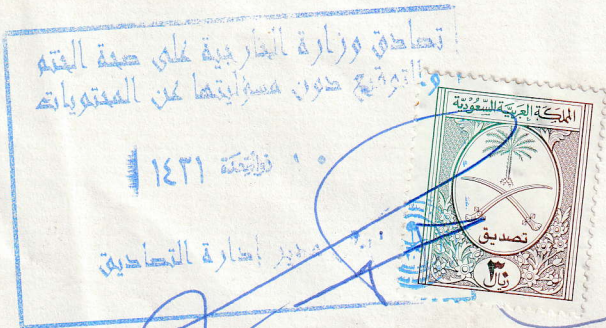 تصادق وزارة الخارجية على صحة الختم
والتوقيع دون مسؤليتها عن المحتويات
ذوالقعدة ١٤٣١
مدير إدارة التصاديق
المملكة العربية السعودية
تصديق
٣ ريال